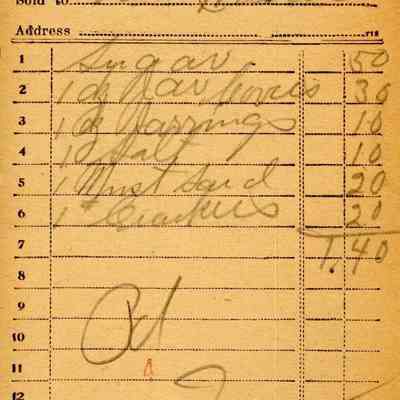 Sold to
Address
1 Sugar 50
2 1 dz Nav 30
3 1 dz Harrings 10
4 1 Salt 10
5 1 Must Sard 20
6 1 Crackers 20
7 1.40
8
9 Pd
10
11
12